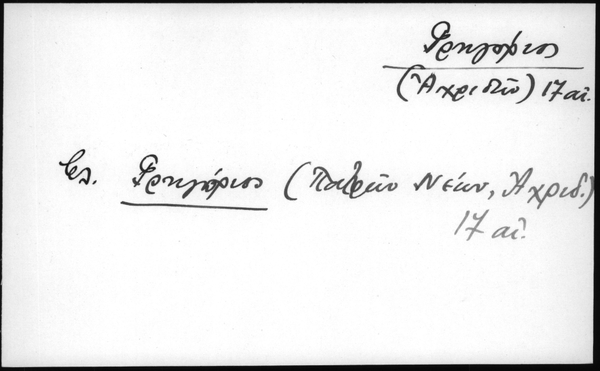 Γρηγόριος
(Ἀχριδῶν) 17 αἰ.
βλ. Γρηγόριος (Πατρῶν Νέων, Ἀχριδ.)
17 αἰ.